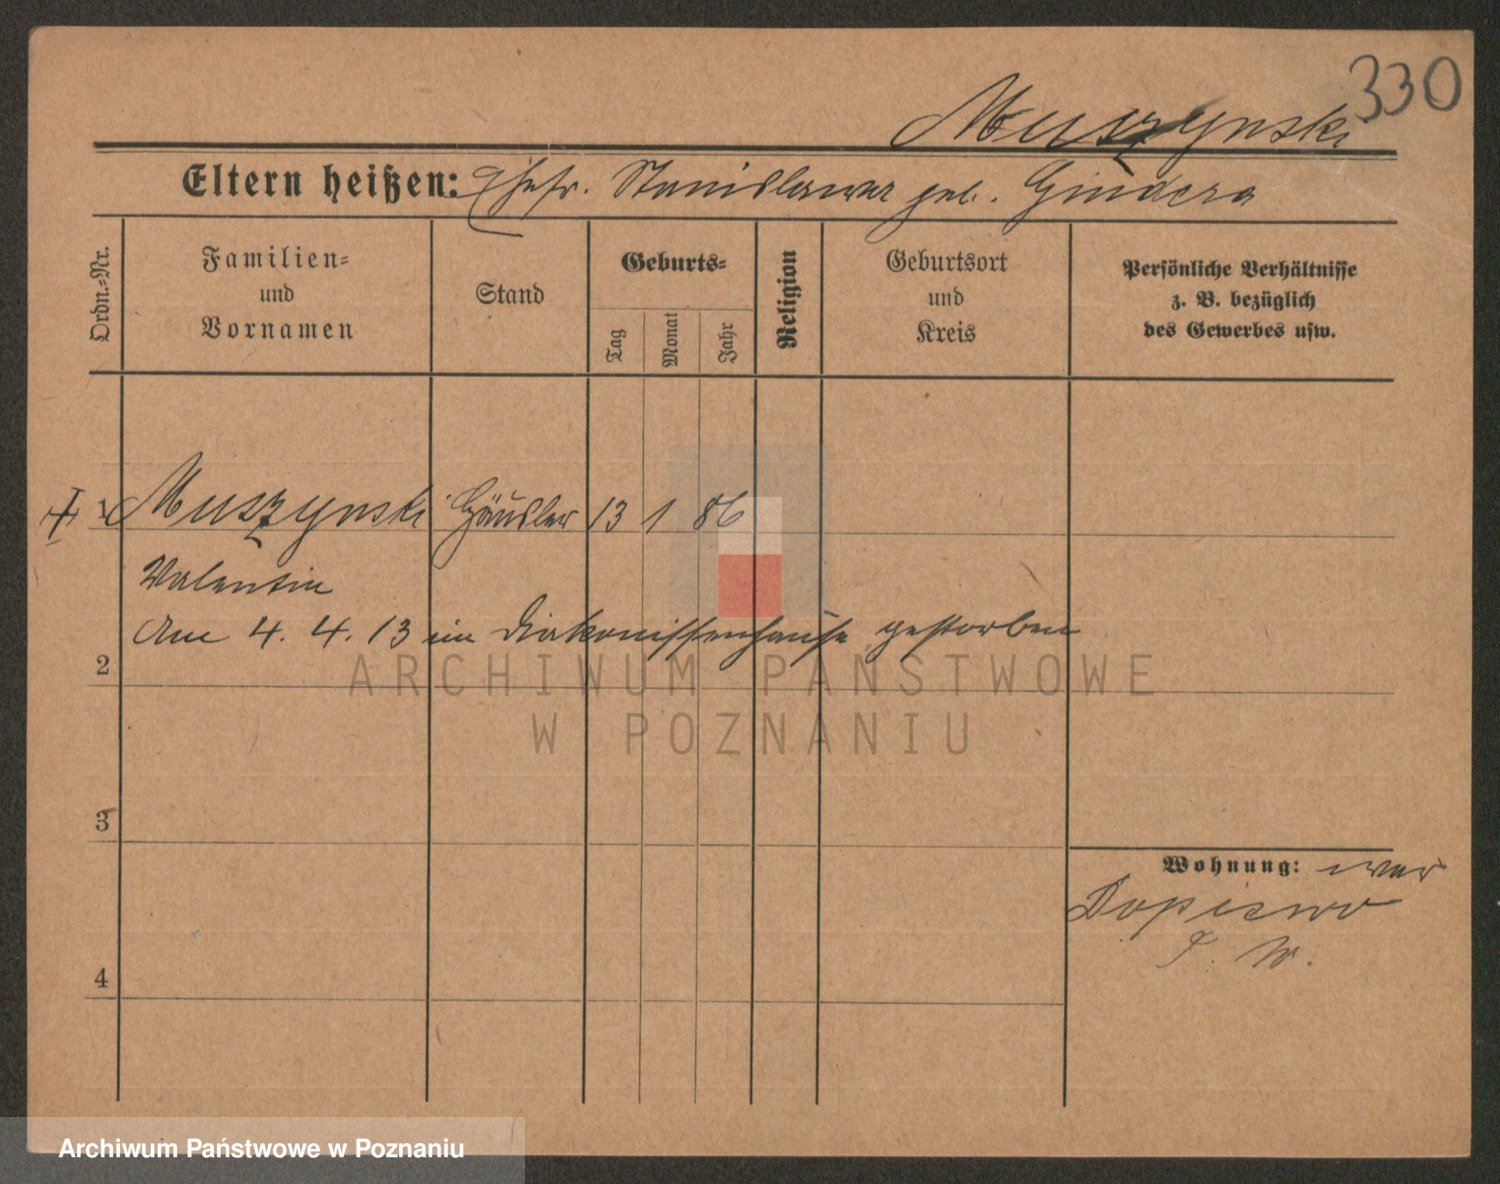 330
Muszynski
Eltern heißen: Ehefr. Stanislawa geb. Gindera
Ordn.-Nr.
Familien-
und
Vornamen
Stand
Geburts-
Tag
Monat
Jahr
Religion
Geburtsort
und
Kreis
Persönliche Verhältnisse
z. B. bezüglich
des Gewerbes usw.
1 Muszynski Häusler 13 1 86
Valentin
Am 4. 4. 13 im Diakonissenhause gestorben
2
ARCHIWUM PAŃSTWOWE
W POZNANIU
3
Wohnung: war
Dopiewo
4
Archiwum Państwowe w Poznaniu